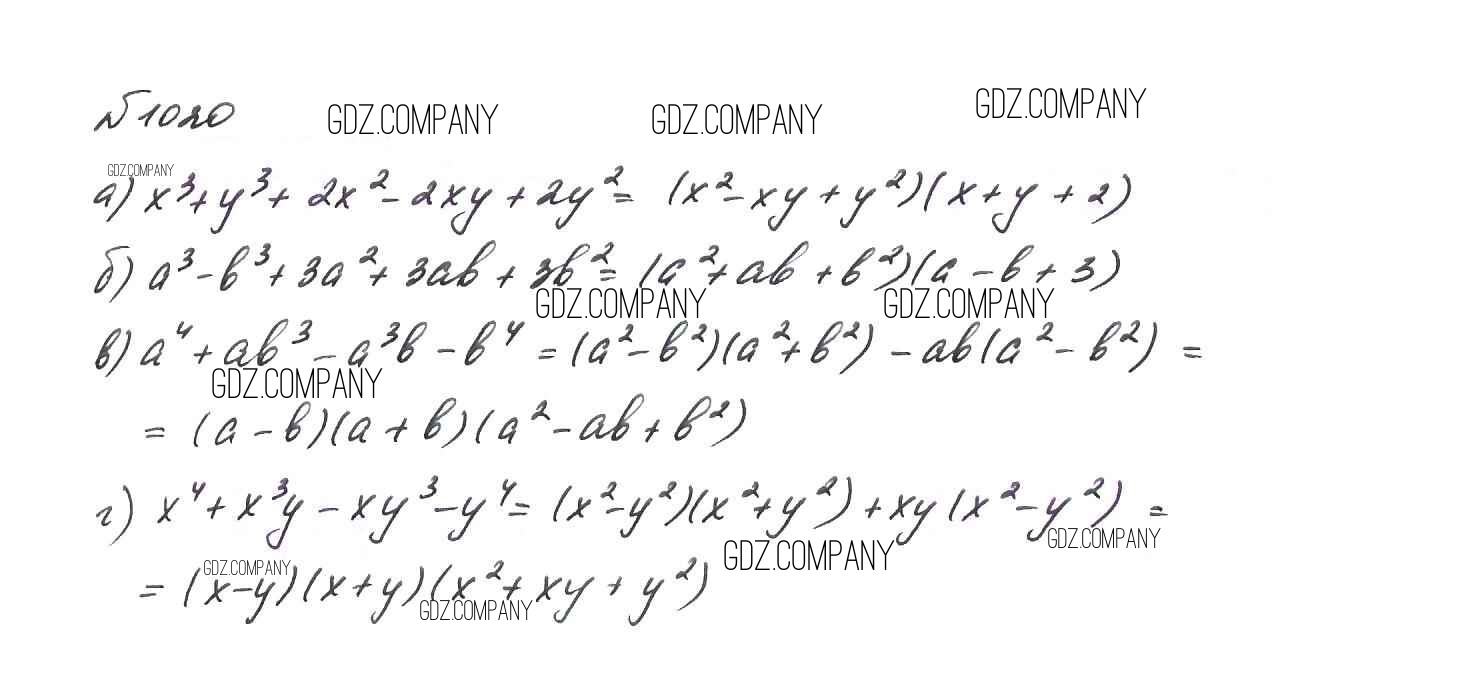 №1020
GDZ.COMPANY GDZ.COMPANY GDZ.COMPANY
GDZ.COMPANY
а) x³+y³+ 2x²-2xy+2y²= (x²-xy+y²)(x+y+2)
б) a³-b³+3a²+3ab+3b²=(a²+ab+b²)(a-b+3)
GDZ.COMPANY GDZ.COMPANY
в) a⁴+ab³-a³b-b⁴=(a²-b²)(a²+b²)-ab(a²-b²)=
GDZ.COMPANY
=(a-b)(a+b)(a²-ab+b²)
г) x⁴+x³y-xy³-y⁴=(x²-y²)(x²+y²)+xy(x²-y²)=
GDZ.COMPANY GDZ.COMPANY GDZ.COMPANY
=(x-y)(x+y)(x²+xy+y²)
GDZ.COMPANY